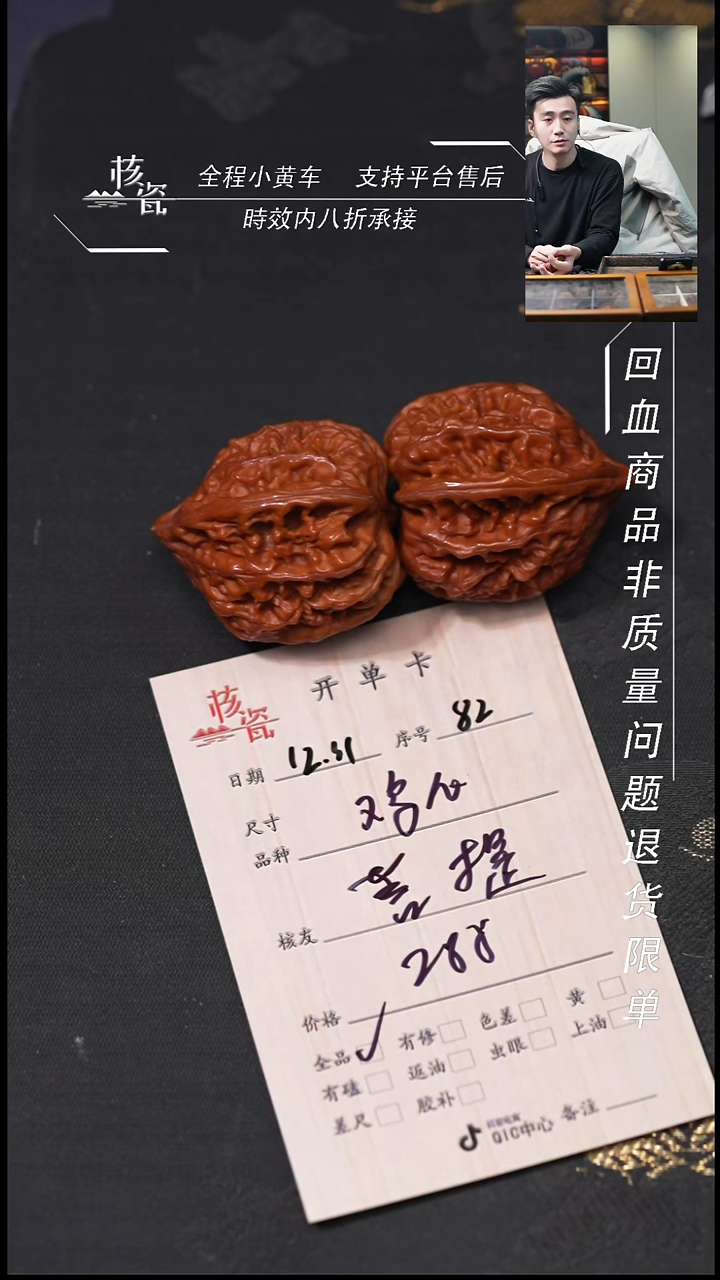 核瓷
全程小黄车 支持平台售后
時效内八折承接
回血商品非质量问题退货限单
核瓷
开单卡
日期 12.31 序号 82
尺寸
品种 鸡心
核友 菩提
价格 288
全品 ✓ 有修 色差 黄
有磕 返油 虫眼 上油
差尺 胶补
抖音电商
QIC中心 备注